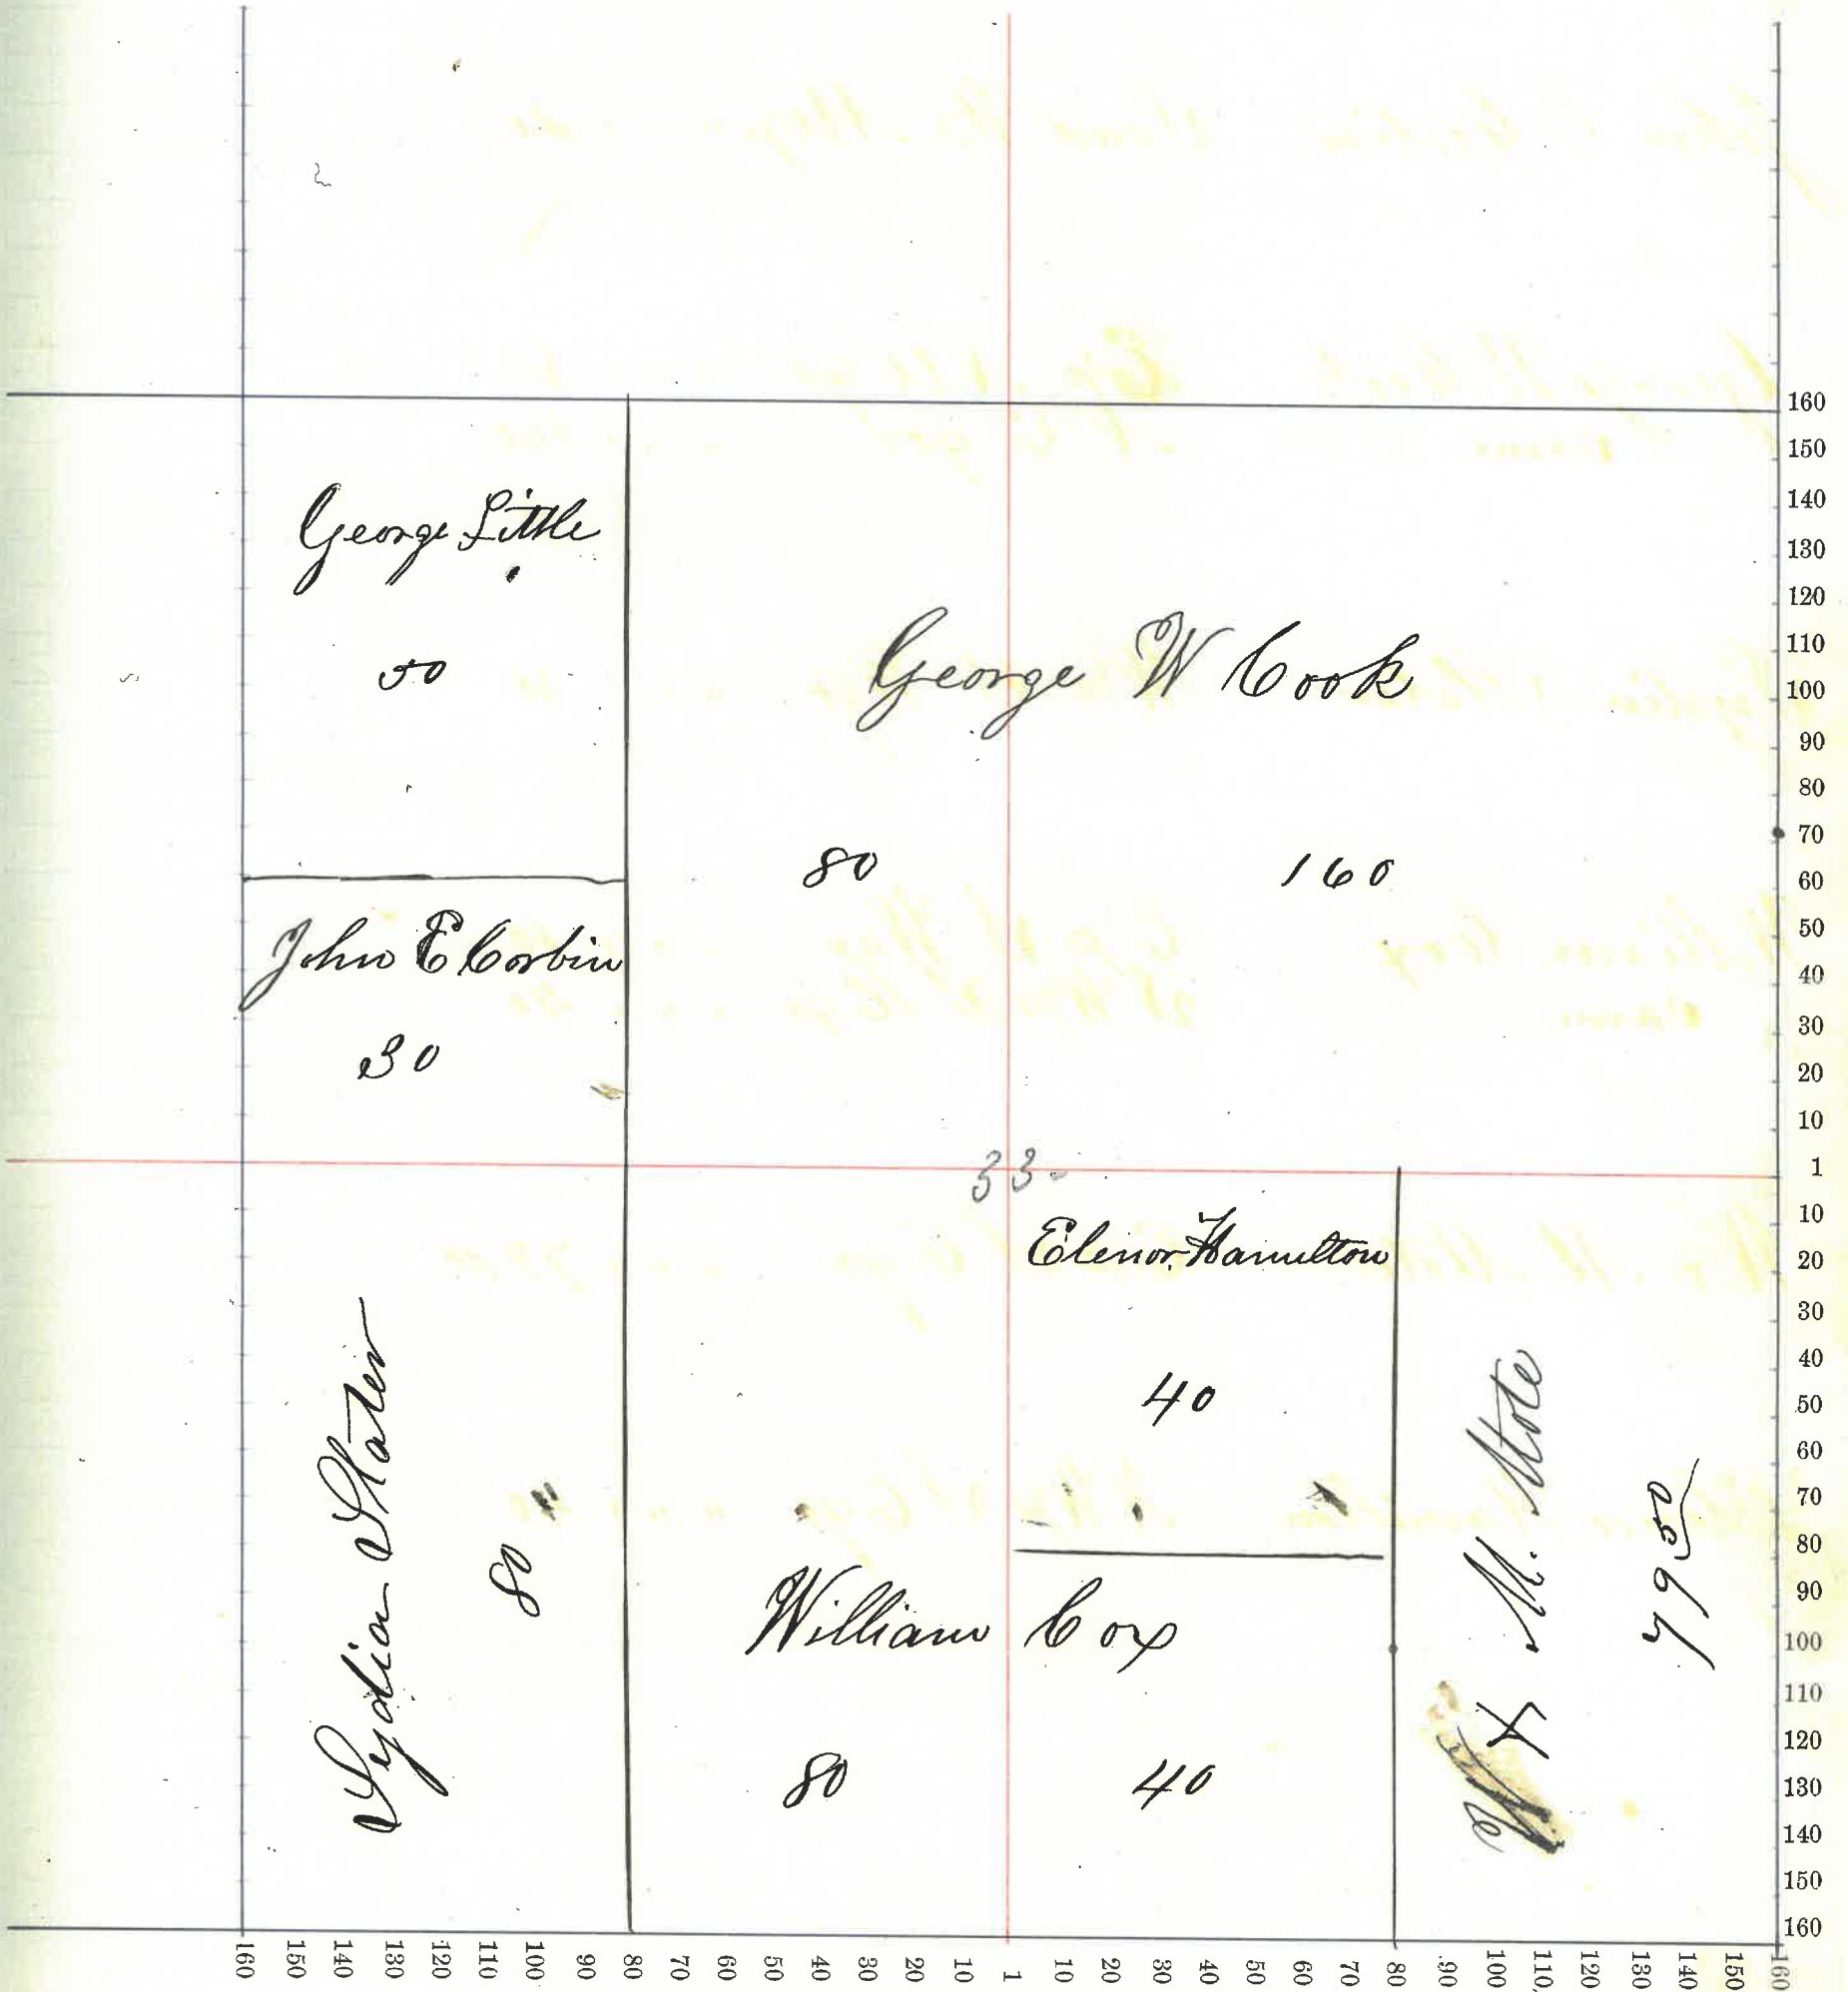 George Little
50
George W Cook
80 160
John E Corbin
30
33
Elenor Hamilton
40
Lydia Slater
80
William Cox
80 40
M. Mote
79.50
160
150
140
130
120
110
100
90
80
70
60
50
40
30
20
10
1
10
20
30
40
50
60
70
80
90
100
110
120
130
140
150
160
160 150 140 130 120 110 100 90 80 70 60 50 40 30 20 10 1 10 20 30 40 50 60 70 80 90 100 110 120 130 140 150 160